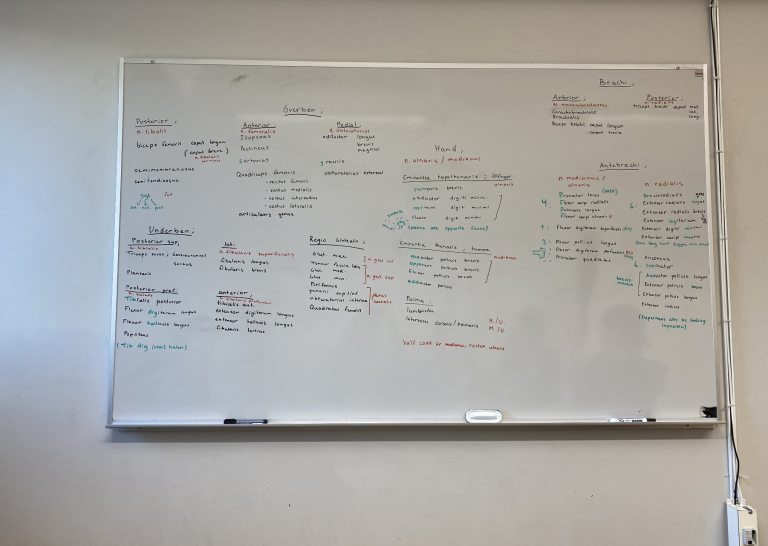 Överben;
Posterior;
n. tibialis
biceps femoris caput longum
(caput breve)
semimembranosus
semitendinosus
Anterior;
n. femoralis
Iliopsoas
Pectineus
Sartorius
Quadriceps femoris
- rectus femoris
- vastus medialis
- vastus intermedius
- vastus lateralis
articularis genus
Medial;
n. obturatorius
adductor longus
brevis
magnus
gracilis
obturatorius external
Underben;
Posterior sup;
n. tibialis
Triceps surae; Gastrocnemius
soleus
Plantaris
Posterior prof;
n. tibialis
Tibialis posterior
Flexor digitorum longus
Flexor hallucis longus
Popliteus
lat;
n. fibularis superficialis
fibularis longus
fibularis brevis
anterior;
tibialis ant.
extensor digitorum longus
extensor hallucis longus
fibularis tertius
Regio Glutealis;
Glut. max.
Tensor fascia lata
Glut. med.
Glut. min.
n. glut. inf
n. glut. sup
Piriformis
gemelli sup/inf
obturatorius interna
Quadratus femoris
plexus
sacralis
Hand;
n. ulnaris / medianus
Eminentia hypothenaris; lillfinger
palmaris brevis
abductor digiti minimi
opponens digiti minimi
flexor digiti minimi
ulnaris
Eminentia thenaris; tumme
abductor pollicis brevis
opponens pollicis brevis
flexor pollicis brevis
adductor pollicis
medianus
Palma;
lumbricales
Interossei dorsales/palmares
M/U
M/U
half LOAF är medianus, resten ulnaris
Brachi;
Anterior;
n. musculocutaneus
Coracobrachialis
Brachialis
Biceps brachii caput longum
caput breve
Posterior;
n. radialis
triceps brachii caput med.
lat.
long.
Antebrachi;
n. medianus/
ulnaris
4
Pronator teres
Flexor carpi radialis
Palmaris longus
Flexor carpi ulnaris U
1:
Flexor digitorum superficialis
3:
Flexor pollicis longus
Flexor digitorum profundus
Pronator quadratus
n. radialis
6:
Brachioradialis
Extensor radialis longus
Extensor radialis brevis
Extensor digitorum
Extensor digiti minimi
Extensor carpi ulnaris
Anconeus
6: supinator
Abductor pollicis longus
Extensor pollicis brevis
Extensor pollicis longus
Extensor indicis